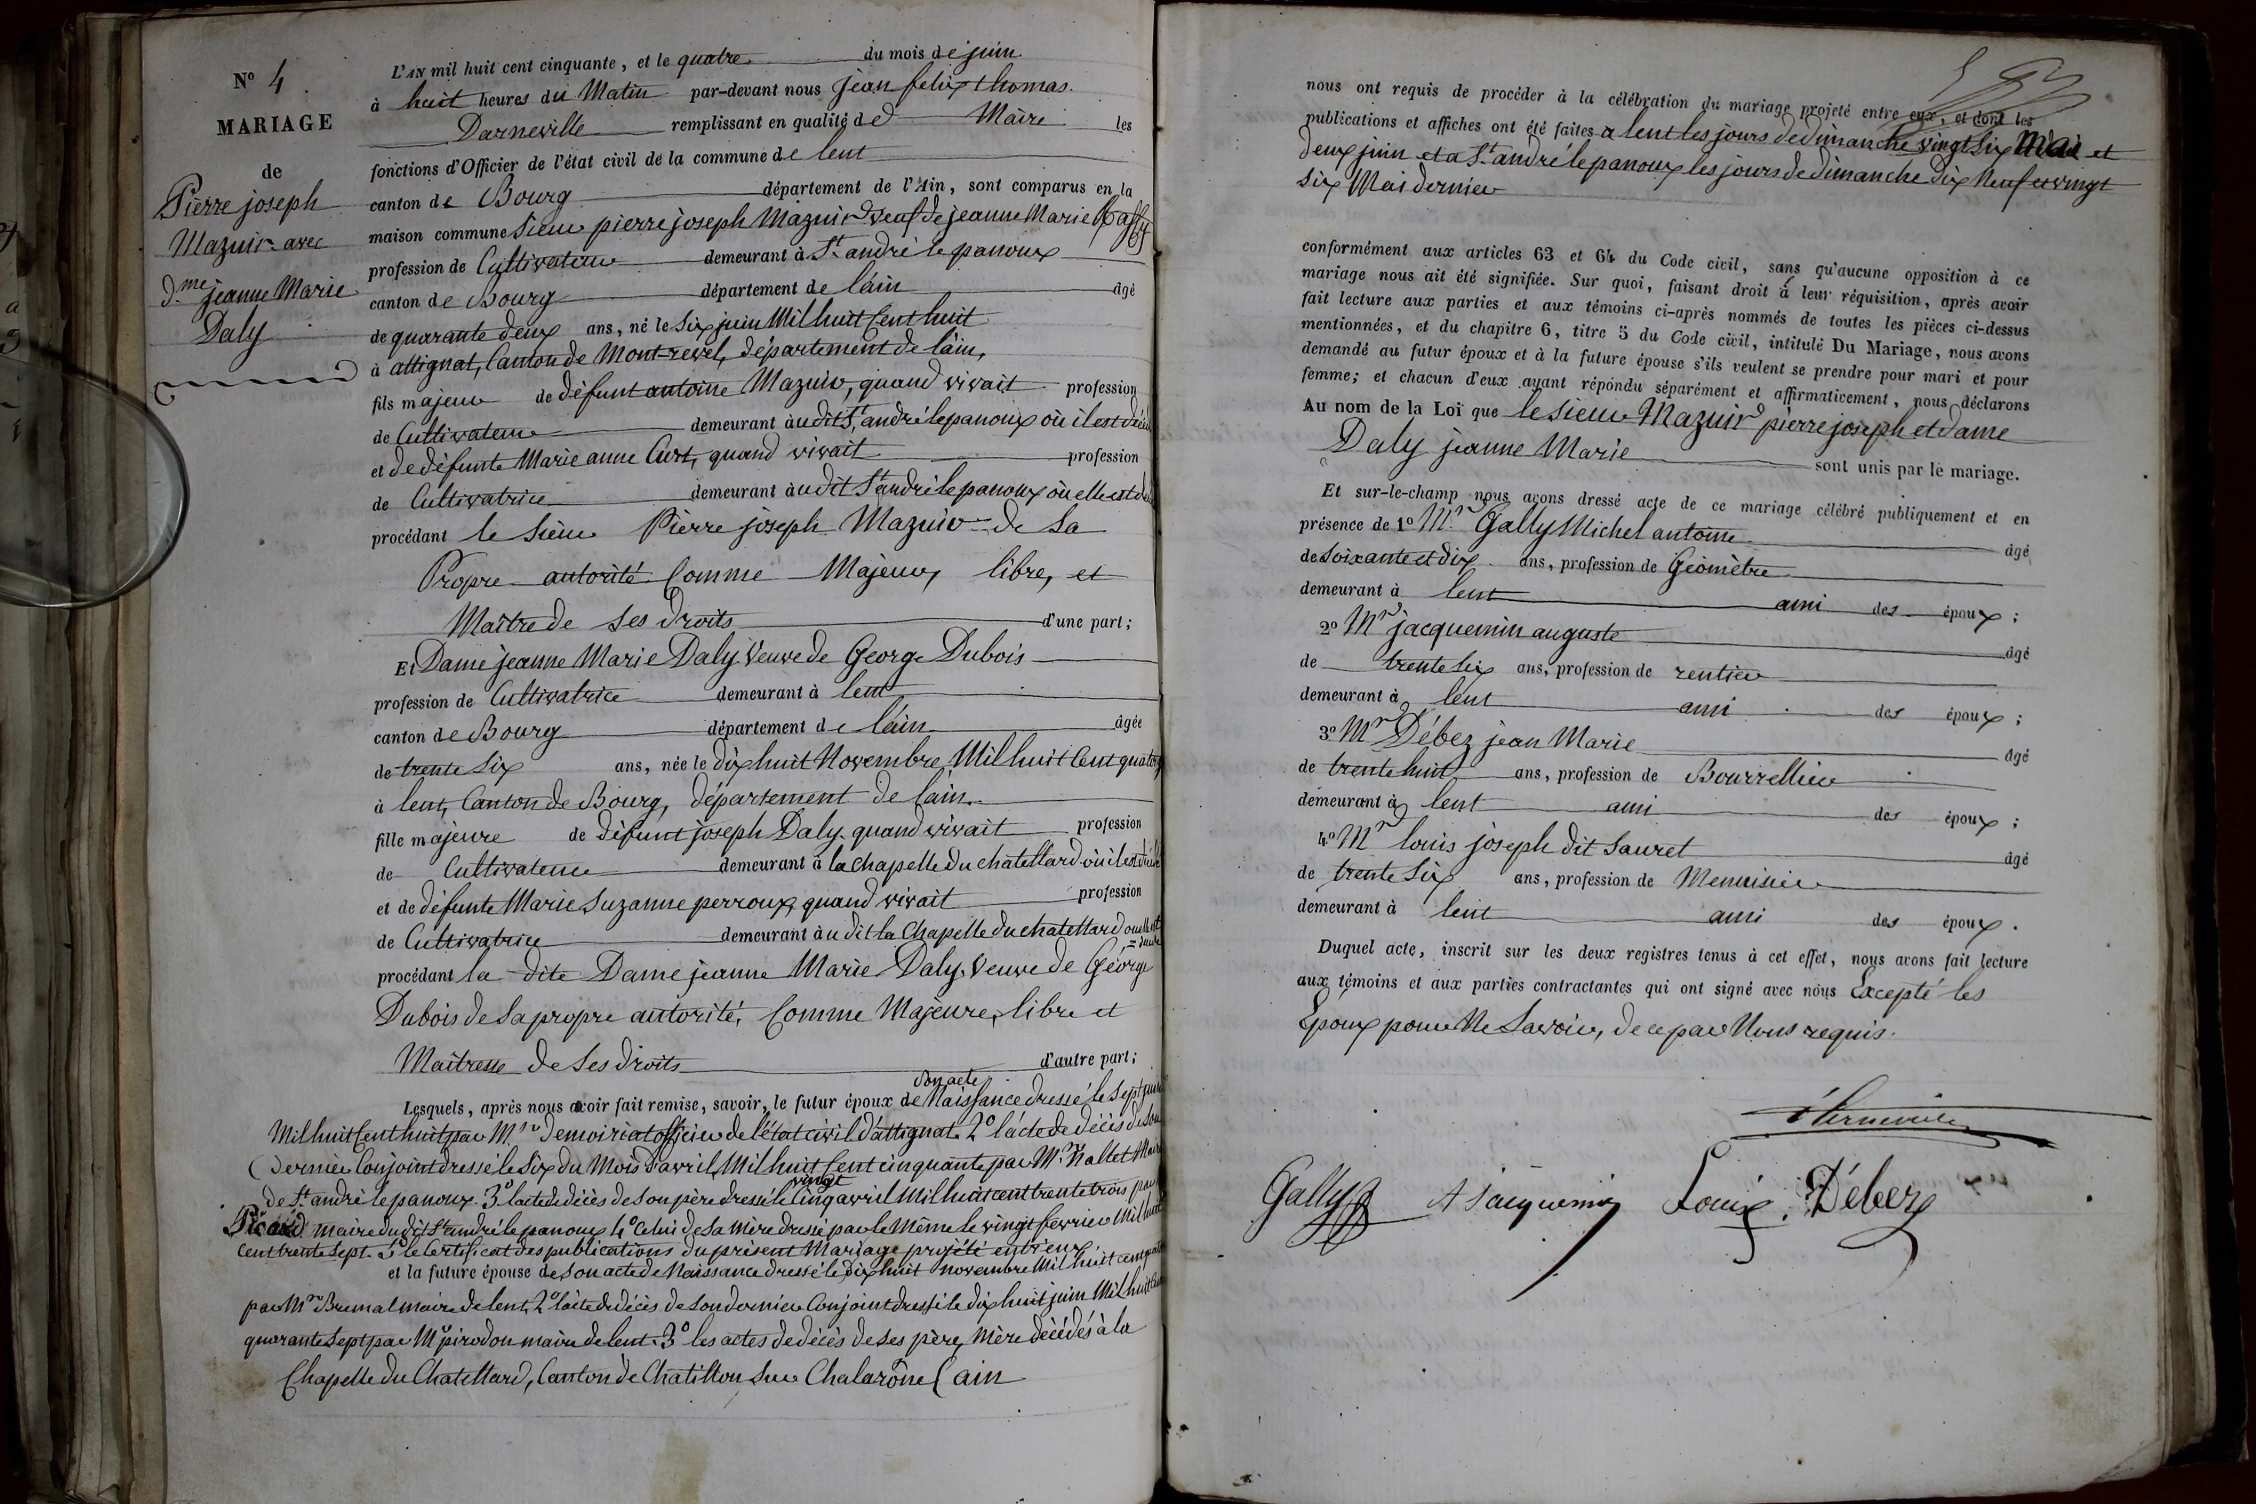 N° 4
MARIAGE
de
Pierre joseph
Mazuir avec
d.me jeanne Marie
Daly
L'AN mil huit cent cinquante, et le quatre du mois de juin
à huit heures du Matin par-devant nous jean felix thomas
Darneville remplissant en qualité de Maire les
fonctions d'Officier de l'état civil de la commune de lent
canton de Bourg département de l'Ain, sont comparus en la
maison commune Sieur pierre joseph Mazuir veuf de jeanne Marie
profession de Cultivateur demeurant à St andré le panoux
canton de Bourg département de l'ain âgé
de quarante deux ans, né le Six juin Mil huit Cent huit
à attignat, Canton de Mont-revel, département de l'ain,
fils majeur de défunt antoine Mazuir, quand vivait profession
de Cultivateur demeurant à udit St andré le panoux où il est décédé
et de défunte Marie anne Curt, quand vivait profession
de Cultivatrice demeurant à udit St andré le panoux où elle est
procédant le Sieur Pierre joseph Mazuir de Sa
Propre autorité Comme Majeur, libre, et
Maître de ses droits d'une part;
Et Dame jeanne Marie Daly Veuve de George Dubois
profession de Cultivatrice demeurant à lent
canton de Bourg département de l'ain âgée
de trente Six ans, née le dix huit Novembre Mil huit Cent quatorze
à lent, Canton de Bourg, département de l'ain.
fille majeure de défunt joseph Daly quand vivait profession
de Cultivateur demeurant à la chapelle du chatellard où il est
et de défunte Marie Suzanne perroux, quand vivait profession
de Cultivatrice demeurant à u dit la Chapelle du chatellard ou elle est
procédant la dite Dame jeanne Marie Daly, Veuve de George
Dubois de Sa propre autorité, Comme Majeure, libre et
Maitresse de Ses droits d'autre part;
Lesquels, après nous avoir fait remise, savoir, le futur époux de son acte Naissance dressé le Sept juin
Mil huit Cent huit par Mr Demoiriat officier de l'état civil d'attignat 2° l'acte de décès de Son
Dernier Conjoint dressé le Six du Mois d'avril Mil huit Cent cinquante par Mr Nallet Maire
de St andré le panoux. 3° l'acte de décès de Son père dressé le vingt Cinq avril Mil huit cent trente trois par
Picard maire du dit St andré le panoux 4° Celui de Sa Mère dressé par le Même le vingt fevrier Mil huit
Cent trente Sept. 5° le Certificat des publications du présent Mariage projété entr'eux
et la future épouse de Son acte de Naissance dressé le Dix huit Novembre Mil huit cent
par Mr Brunal maire de lent, 2° l'acte de décès de Son dernier Conjoint dressé le dix huit juin Mil huit Cent
quarante Sept par Mr pirodon maire de lent. 3° les actes de décès de Ses père, Mère décédés à la
Chapelle du Chatellard, Canton de Chatillon Sur Chalarône (ain
nous ont requis de procéder à la célébration du mariage projeté entre eux, et dont les
publications et affiches ont été faites a lent les jours de dimanche vingt Six Mai et
deux juin et a St andré le panoux les jours de dimanche dix Neuf et vingt
Six Mai dernier
conformément aux articles 63 et 64 du Code civil, sans qu'aucune opposition à ce
mariage nous ait été signifiée. Sur quoi, faisant droit à leur réquisition, après avoir
fait lecture aux parties et aux témoins ci-après nommés de toutes les pièces ci-dessus
mentionnées, et du chapitre 6, titre 5 du Code civil, intitulé Du Mariage, nous avons
demandé au futur époux et à la future épouse s'ils veulent se prendre pour mari et pour
femme; et chacun d'eux ayant répondu séparément et affirmativement, nous déclarons
Au nom de la Loi que le Sieur Mazuir pierre joseph et dame
Daly jeanne Marie sont unis par le mariage.
Et sur-le-champ nous avons dressé acte de ce mariage célébré publiquement et en
présence de 1° Mr Gally Michel antoine âgé
de Soixante et dix ans, profession de Géomètre
demeurant à lent ami des époux;
2° Mr jacquemin auguste âgé
de trente Six ans, profession de rentier
demeurant à lent ami des époux;
3° Mr Débez jean Marie âgé
de trente huit ans, profession de Bourrellier
demeurant à lent ami des époux;
4° Mr louis joseph dit Sauret âgé
de trente Six ans, profession de Menuisier
demeurant à lent ami des époux.
Duquel acte, inscrit sur les deux registres tenus à cet effet, nous avons fait lecture
aux témoins et aux parties contractantes qui ont signé avec nous Excepté les
Epoux pour Ne Savoir, de ce par Nous requis.
Gally A Jacquemin Louis Débez